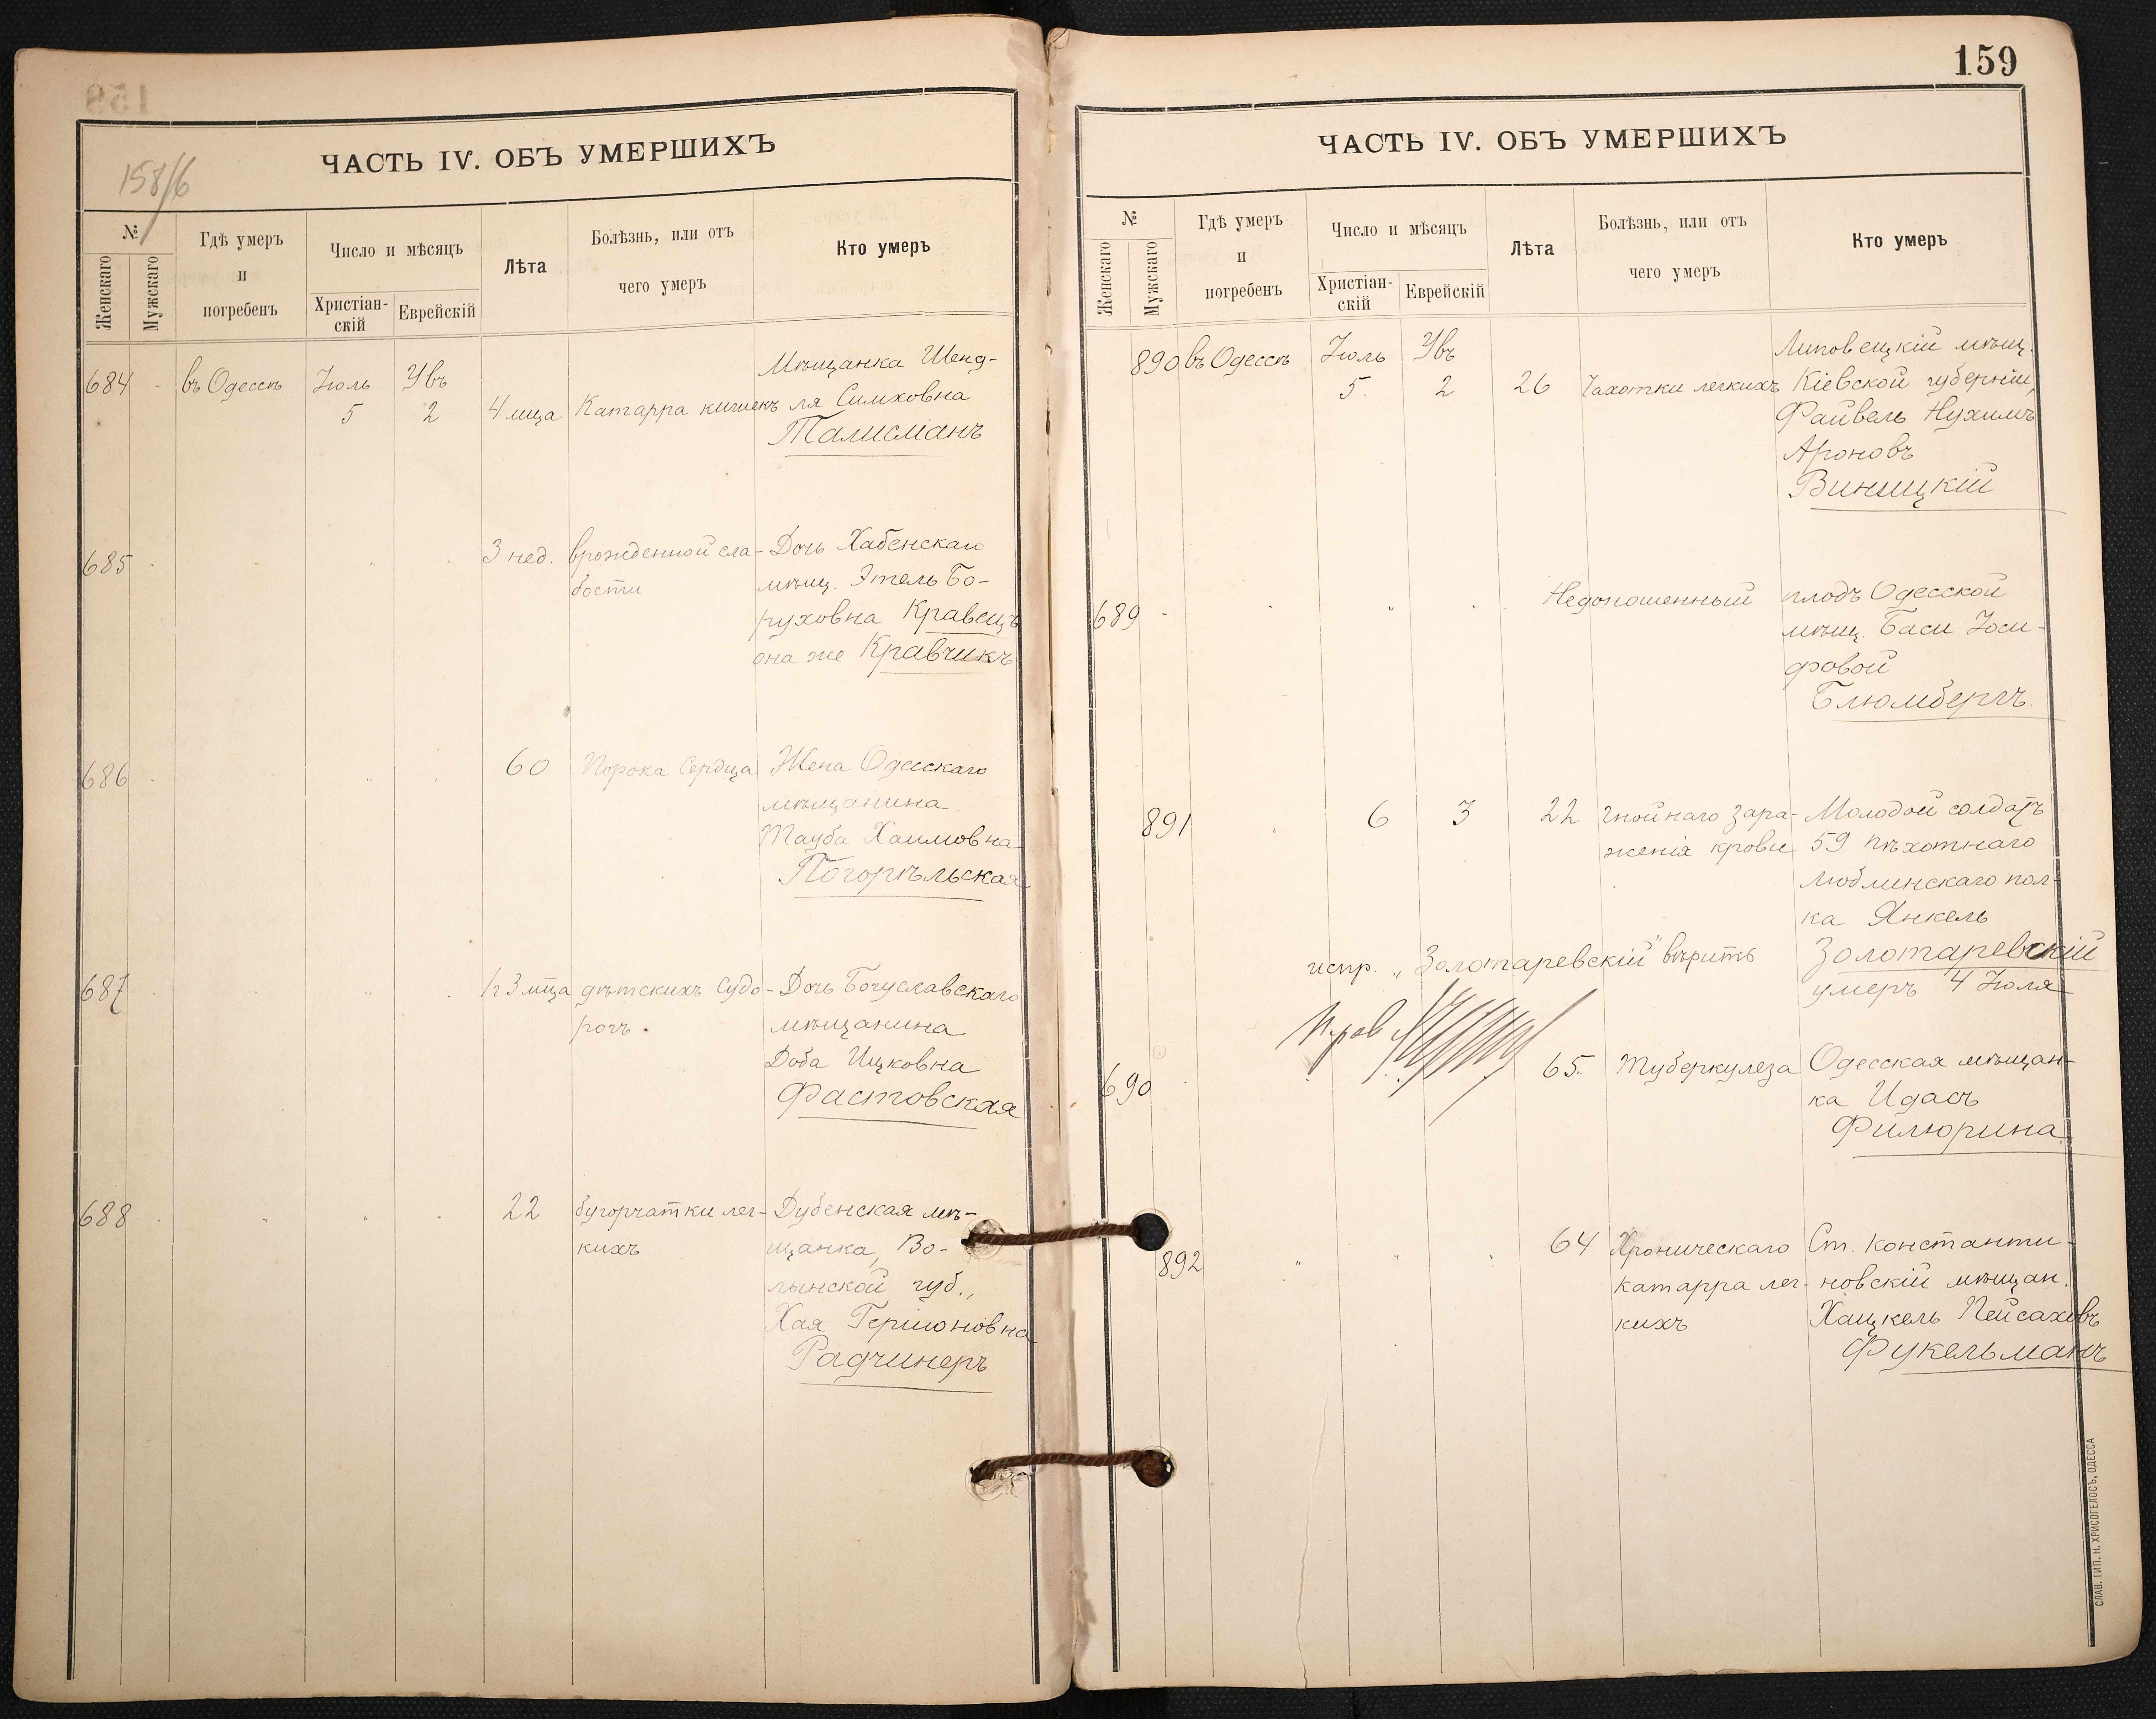 158/6
ЧАСТЬ IV. ОБЪ УМЕРШИХЪ
№
Женскаго
Мужскаго
Гдѣ умеръ
и
погребенъ
Число и мѣсяцъ
Христіан-
скій
Еврейскій
Лѣта
Болѣзнь, или отъ
чего умеръ
Кто умеръ
684
въ Одессѣ
Іюль
5
Увъ
2
4 мца
Катарра кишекъ
Мѣщанка Шенд-
ля Симховна
Талисманъ
685
3 нед.
врожденной сла-
бости
Дочь Хабенскаго
мѣщ. Этель Бо-
руховна Кравецъ
она же Кравчикъ
686
60
Порока сердца
Жена Одесскаго
мѣщанина
Тауба Хаимовна
Погорѣльская
687
1 г 3 мца
дѣтскихъ судо-
рогъ
Дочь Богуславскаго
мѣщанина
Доба Ицковна
Фастовская
688
22
бугорчатки лег-
кихъ
Дубенская мѣ-
щанка, Во-
лынской губ.,
Хая Гершоновна
Радчинеръ
159
ЧАСТЬ IV. ОБЪ УМЕРШИХЪ
№
Женскаго
Мужскаго
Гдѣ умеръ
и
погребенъ
Число и мѣсяцъ
Христіан-
скій
Еврейскій
Лѣта
Болѣзнь, или отъ
чего умеръ
Кто умеръ
890
въ Одессѣ
Іюль
5
Увъ
2
26
Чахотки легкихъ
Липовецкій мѣщ.
Кіевской губерніи,
Файвель Нухимъ
Ароновъ
Виницкій
689
Недоношенный
плодъ Одесской
мѣщ. Баси Іоси-
фовой
Блюмбергъ
891
6
3
22
гнойнаго зара-
женія крови
Молодой солдатъ
59 пѣхотнаго
Люблинскаго пол-
ка Янкель
Золотаревскій
умеръ 4 Іюля
испр. „Золотаревскій" вѣрить
690
65
Туберкулеза
Одесская мѣщан-
ка Идасъ
Филюрина
892
64
Хроническаго
катарра лег-
кихъ
Ст. Константи-
новскій мѣщан.
Хацкель Пейсаховъ
Фукельманъ
СЛАВ. ТИП. Н. ХРИСОГЕЛОСЪ, ОДЕССА